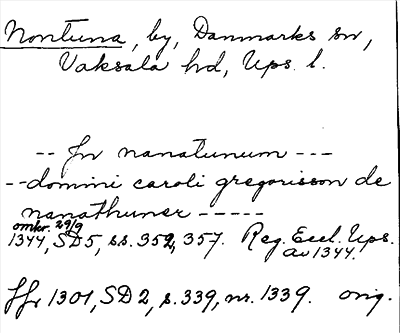 Nontuna, by, Danmarks sn,
Vaksala hd, Ups. l.
-- Jn nanatunum ---
-- domini caroli gregorisson de
nanathuner -----
omkr. 29/9
1344, SD5, ss. 352, 357. Reg. Eccl. Ups.
av 1344.
ffr 1301, SD2, s. 339, nr. 1339. orig.